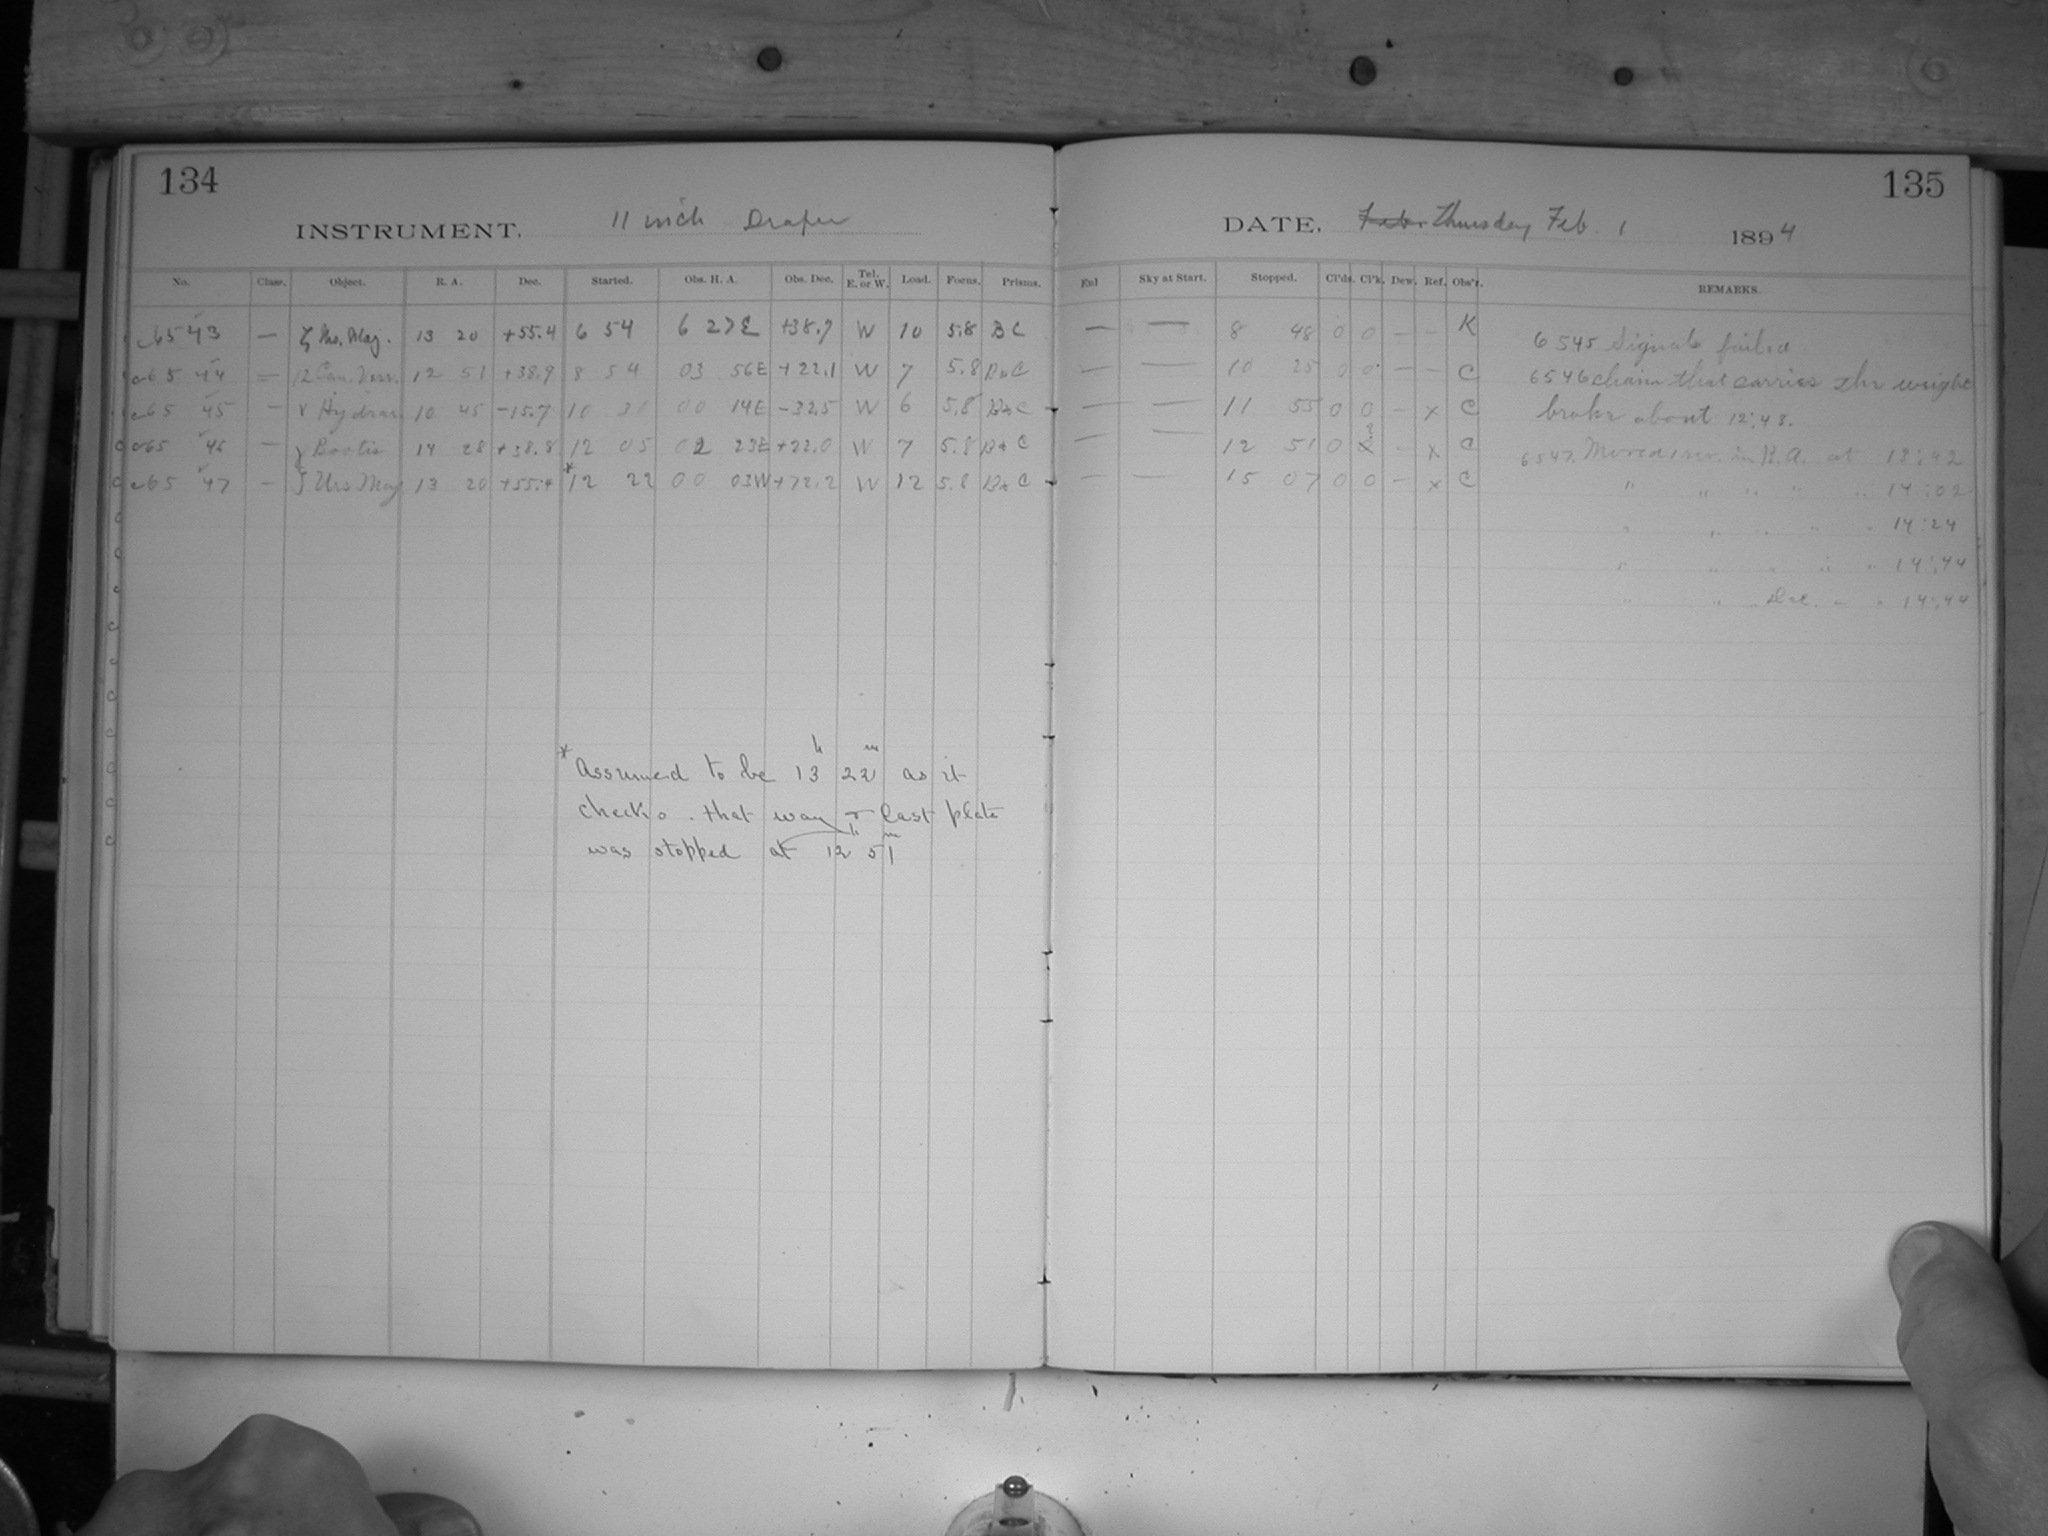 134
INSTRUMENT. 11 inch Draper
No. Class. Object. R. A. Dec. Started. Obs. H. A. Obs. Dec. Tel. E. or W. Load. Focus. Prisms.
c6543 — ζ Urs. Maj. 13 20 +55.4 6 54 6 27E +38.7 W 10 5.8 B C
c65 44 — 12 Can. Ven. 12 51 +38.9 8 54 03 56E +22.1 W 7 5.8 B & C
c65 45 — ν Hydrae 10 45 -15.7 10 30 00 14E -32.5 W 6 5.8 B & C
c65 46 — γ Bootis 14 28 +38.8 12 05 02 23E +22.0 W 7 5.8 B & C
c65 47 — ζ Urs. Maj 13 20 +55.4 *12 22 00 03W +72.2 W 12 5.8 B & C
* Assumed to be 13h 22m as it
checks that way & last plate
was stopped at 12h 51m
135
DATE, Thursday Feb. 1 1894
Sky at Start. Stopped. Cl'ds. Cl'k. Dew. Ref. Obs'r. REMARKS.
— — 8 48 0 0 — — K
— — 10 25 0 0 — — C
— — 11 55 0 0 — x C
— — 12 51 0 x — x C
— — 15 07 0 0 — x C
6545 Signals failed
6546 chain that carries the weight
broke about 12:48.
6547. Moved in R.A. at 13:42
" " " " " 14:02
" " " " " 14:24
" " " " " 14:44
" " " Dec. " " 14:44